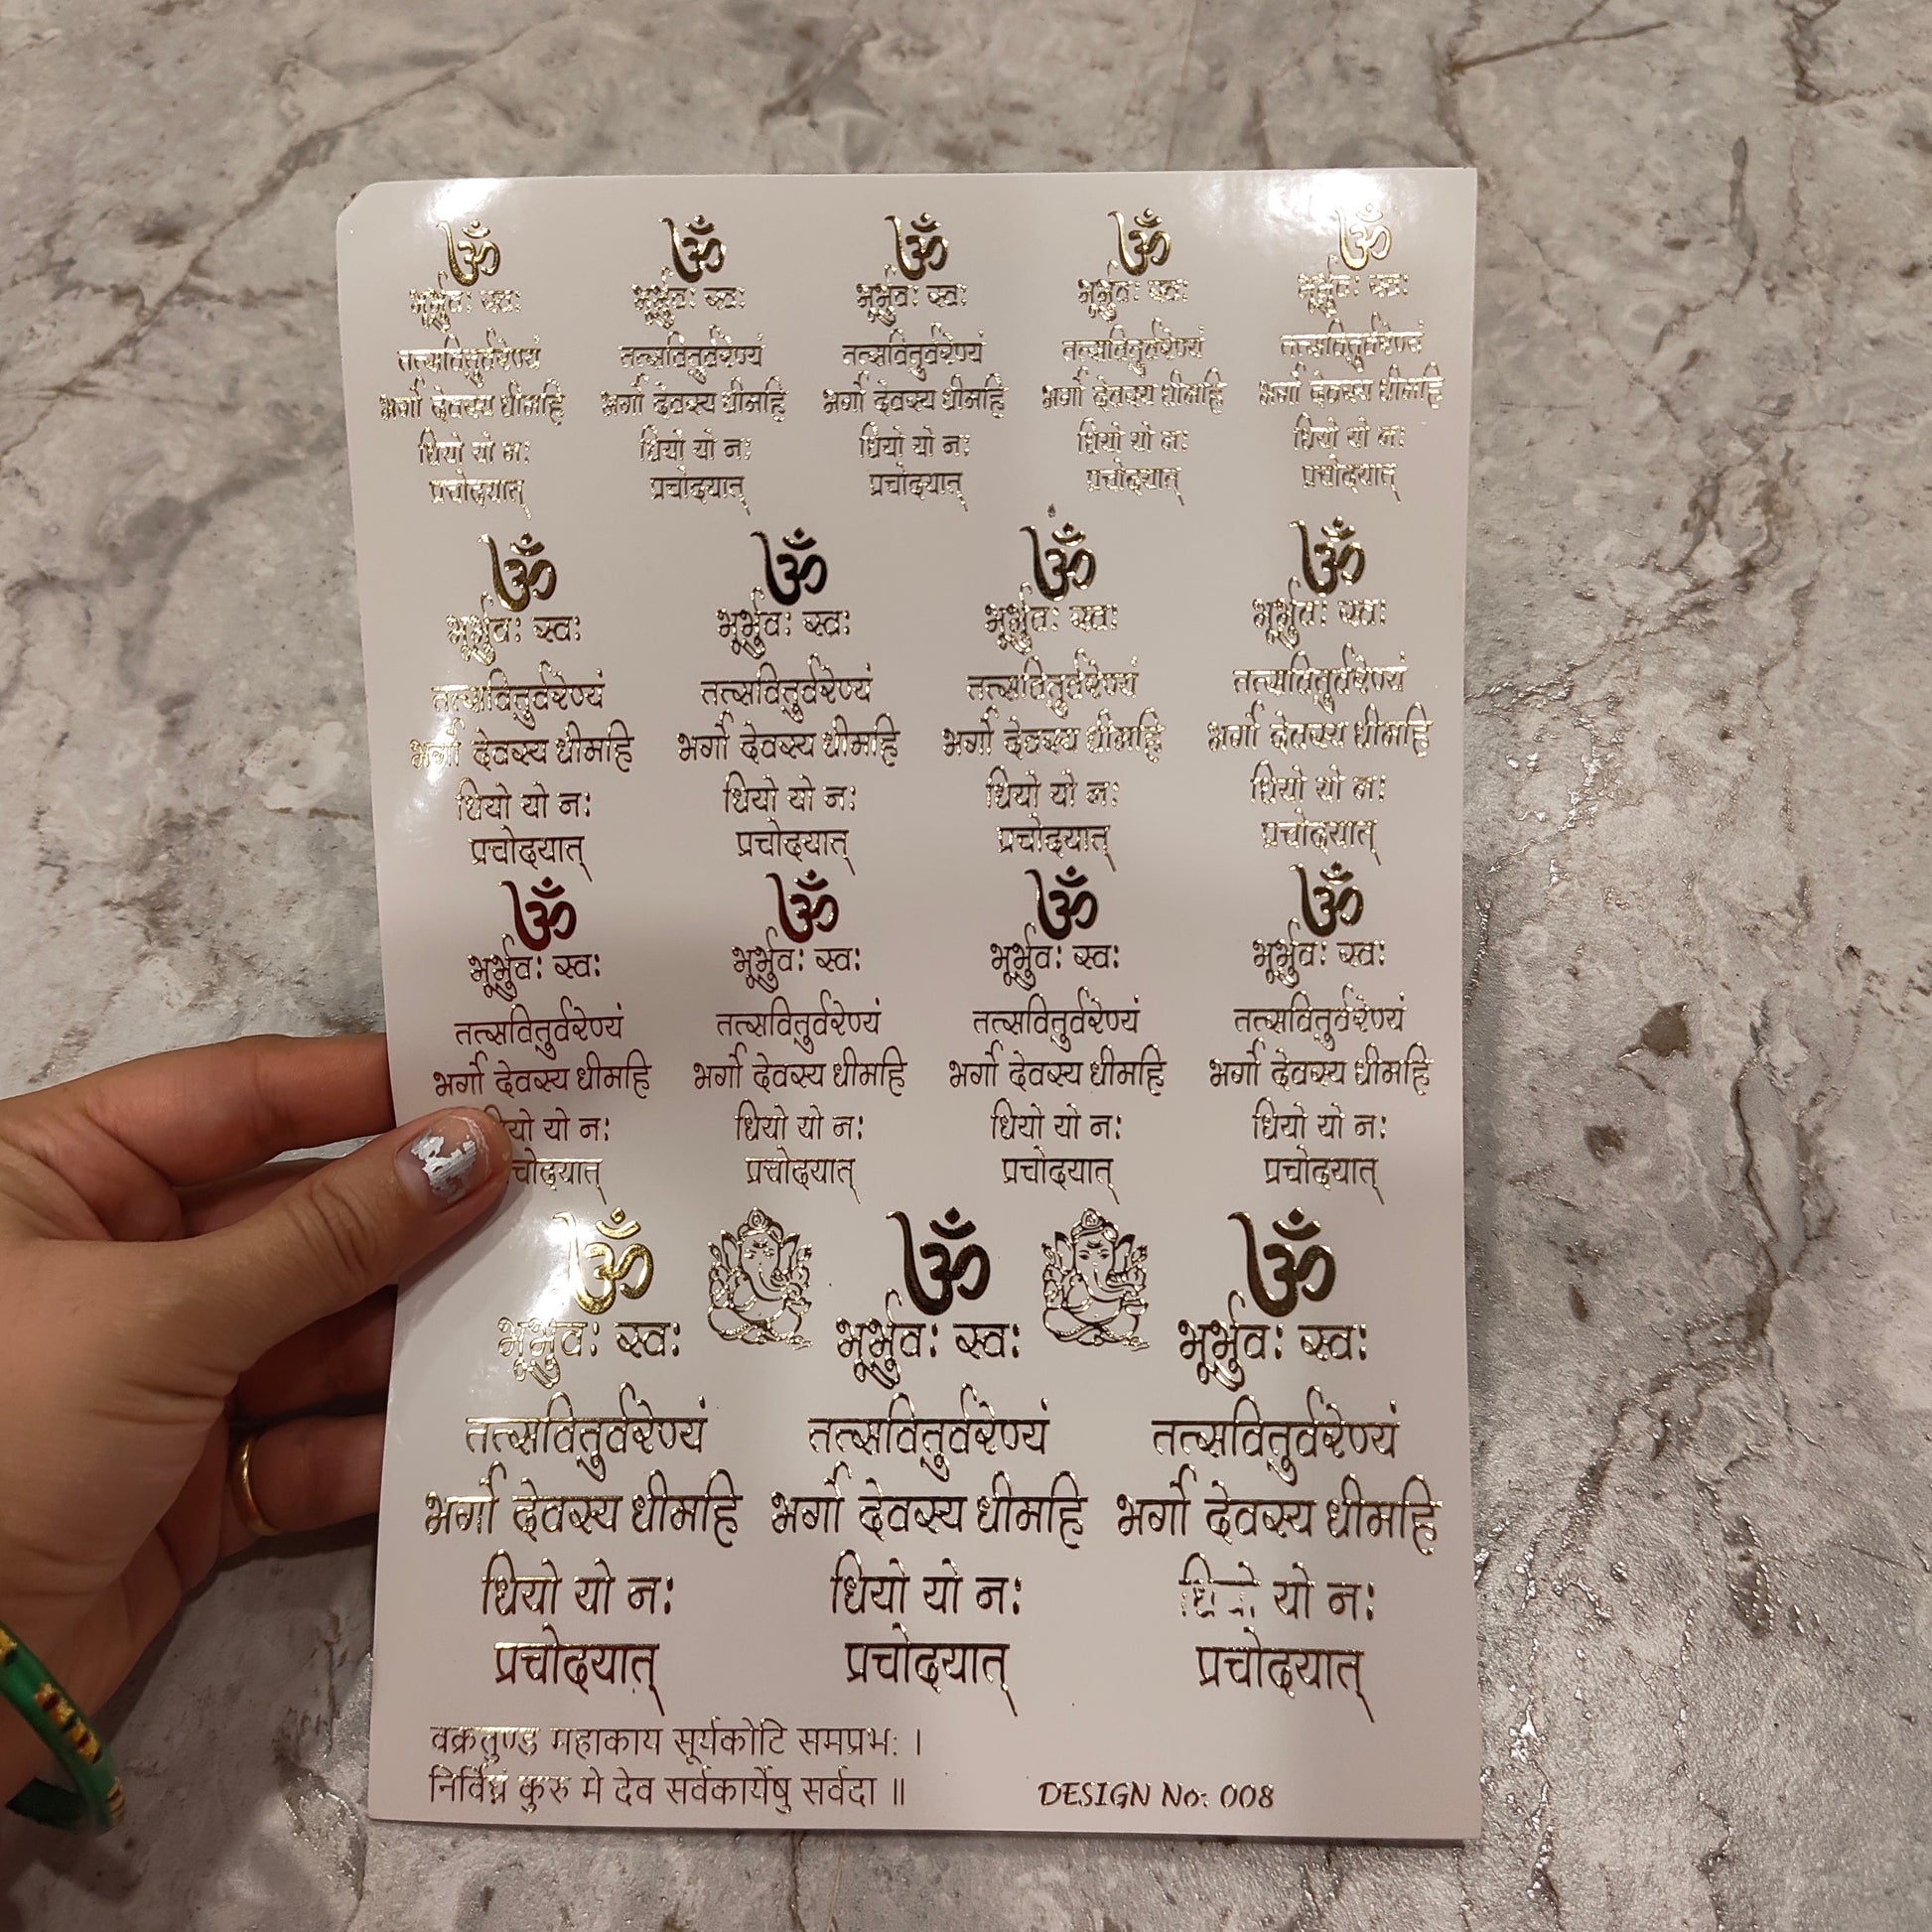 ॐ
भूर्भुवः स्वः
तत्सवितुर्वरेण्यं
भर्गो देवस्य धीमहि
धियो यो नः
प्रचोदयात्
ॐ
भूर्भुवः स्वः
तत्सवितुर्वरेण्यं
भर्गो देवस्य धीमहि
धियो यो नः
प्रचोदयात्
ॐ
भूर्भुवः स्वः
तत्सवितुर्वरेण्यं
भर्गो देवस्य धीमहि
धियो यो नः
प्रचोदयात्
ॐ
भूर्भुवः स्वः
तत्सवितुर्वरेण्यं
भर्गो देवस्य धीमहि
धियो यो नः
प्रचोदयात्
ॐ
भूर्भुवः स्वः
तत्सवितुर्वरेण्यं
भर्गो देवस्य धीमहि
धियो यो नः
प्रचोदयात्
ॐ
भूर्भुवः स्वः
तत्सवितुर्वरेण्यं
भर्गो देवस्य धीमहि
धियो यो नः
प्रचोदयात्
ॐ
भूर्भुवः स्वः
तत्सवितुर्वरेण्यं
भर्गो देवस्य धीमहि
धियो यो नः
प्रचोदयात्
ॐ
भूर्भुवः स्वः
तत्सवितुर्वरेण्यं
भर्गो देवस्य धीमहि
धियो यो नः
प्रचोदयात्
ॐ
भूर्भुवः स्वः
तत्सवितुर्वरेण्यं
भर्गो देवस्य धीमहि
धियो यो नः
प्रचोदयात्
ॐ
भूर्भुवः स्वः
तत्सवितुर्वरेण्यं
भर्गो देवस्य धीमहि
यो नः
ॐ
भूर्भुवः स्वः
तत्सवितुर्वरेण्यं
भर्गो देवस्य धीमहि
धियो यो नः
प्रचोदयात्
ॐ
भूर्भुवः स्वः
तत्सवितुर्वरेण्यं
भर्गो देवस्य धीमहि
धियो यो नः
प्रचोदयात्
ॐ
भूर्भुवः स्वः
तत्सवितुर्वरेण्यं
भर्गो देवस्य धीमहि
धियो यो नः
प्रचोदयात्
ॐ
भूर्भुवः स्वः
तत्सवितुर्वरेण्यं
भर्गो देवस्य धीमहि
धियो यो नः
प्रचोदयात्
ॐ
भूर्भुवः स्वः
तत्सवितुर्वरेण्यं
भर्गो देवस्य धीमहि
धियो यो नः
प्रचोदयात्
ॐ
भूर्भुवः स्वः
तत्सवितुर्वरेण्यं
भर्गो देवस्य धीमहि
यो नः
प्रचोदयात्
वक्रतुण्ड महाकाय सूर्यकोटि समप्रभः ।
निर्विघ्नं कुरु मे देव सर्वकार्येषु सर्वदा ॥
DESIGN No: 008